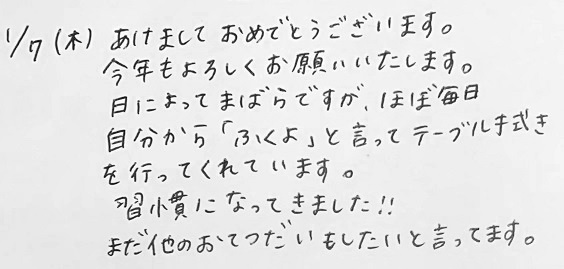 1/7(木) あけましておめでとうございます。
今年もよろしくお願いいたします。
日によってまばらですが、ほぼ毎日
自分から「ふくよ」と言ってテーブル拭き
を行ってくれています。
習慣になってきました!!
まだ他のおてつだいもしたいと言ってます。